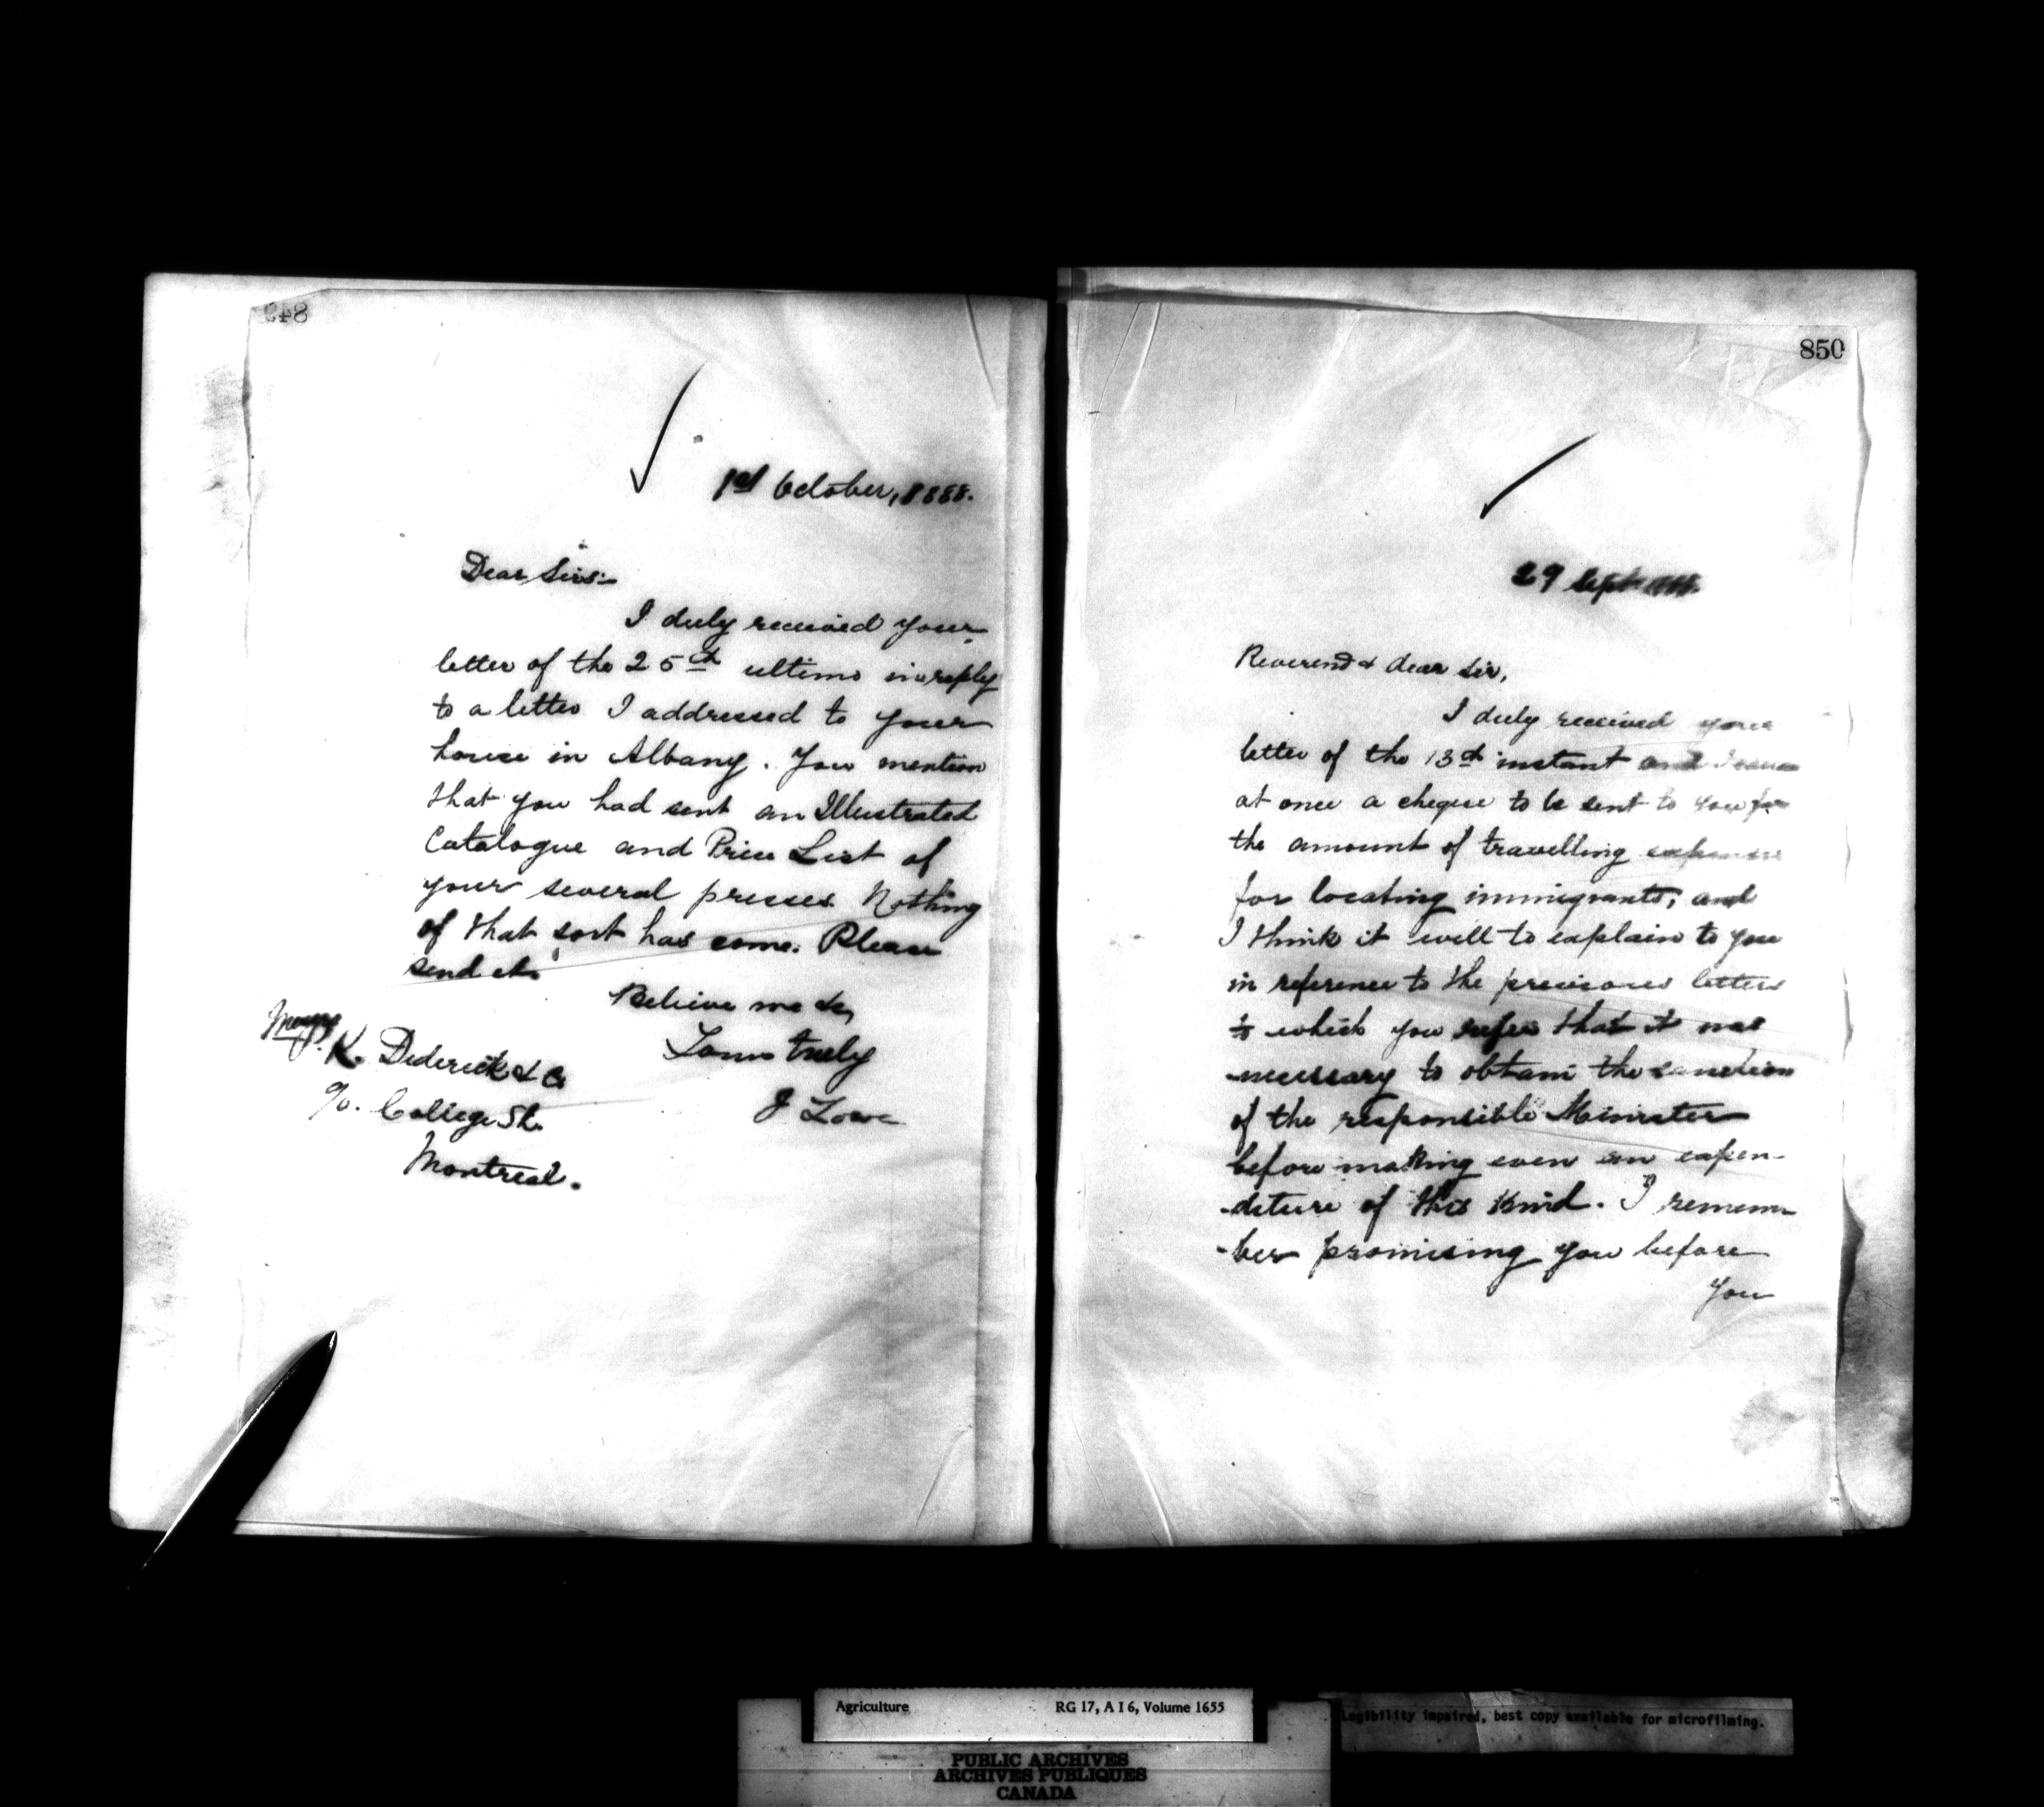 1st October, 1888.
Dear Sirs:-
I duly received your
letter of the 25th ultimo in reply
to a letter I addressed to your
house in Albany. You mention
that you had sent an Illustrated
Catalogue and Price List of
your several presses. Nothing
of that sort has come. Please
send it.
Believe me to be
Yours truly
J Lowe
Messrs. K. Dederick & Co
90. College St.
Montreal.
850
29 Sept
Reverend & dear Sir,
I duly received your
letter of the 13th instant and I cause
at once a cheque to be sent to you for
the amount of travelling expenses
for locating immigrants; and
I think it well to explain to you
in reference to the previous letters
to which you refer that it was
necessary to obtain the sanction
of the responsible Minister
before making even an expen-
-diture of this kind. I remem-
-ber promising you before
you
Agriculture RG 17, A I 6, Volume 1655
Legibility impaired, best copy available for microfilming.
PUBLIC ARCHIVES
ARCHIVES PUBLIQUES
CANADA